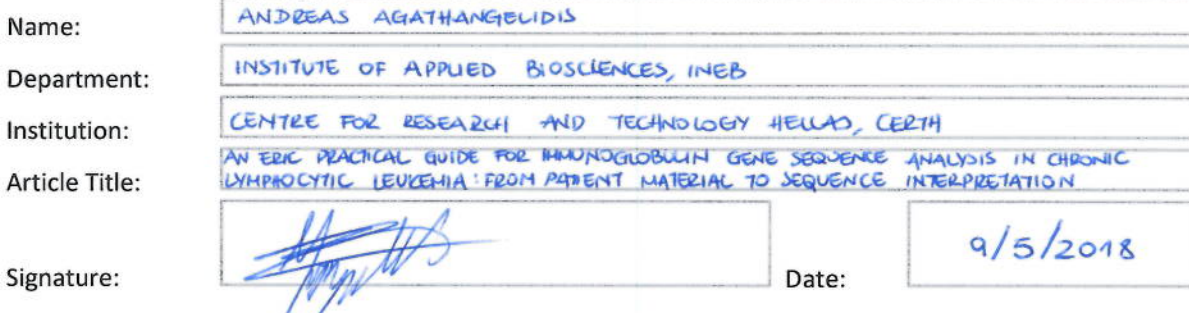 Name: ANDREAS AGATHANGELIDIS
Department: INSTITUTE OF APPLIED BIOSCIENCES, INEB
Institution: CENTRE FOR RESEARCH AND TECHNOLOGY HELLAS, CERTH
AN ERIC PRACTICAL GUIDE FOR IMMUNOGLOBULIN GENE SEQUENCE ANALYSIS IN CHRONIC
Article Title: LYMPHOCYTIC LEUKEMIA: FROM PATIENT MATERIAL TO SEQUENCE INTERPRETATION
Signature: Date: 9/5/2018